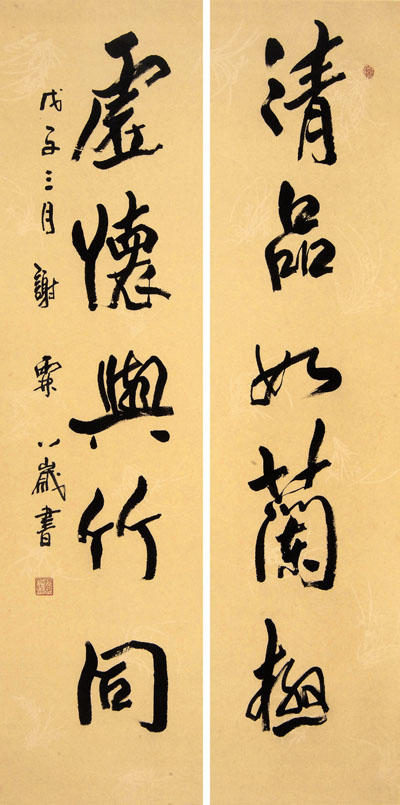 清品如蘭極
虛懷與竹同
戊子三月 謝 八歲書